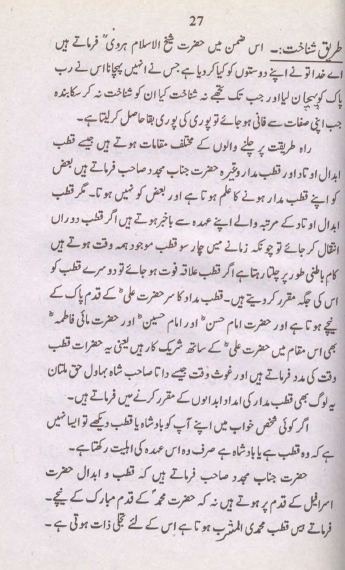 27
طریق شناخت:۔ اس ضمن میں حضرت شیخ الاسلام ہروی ؒ فرماتے ہیں
اے خدا تو نے اپنے دوستوں کو کیا کر دیا ہے جس نے انہیں پہچانا اس نے رب
پاک کو پہچان لیا اور جب تک تجھے نہ شناخت کیا ان کو شناخت نہ کر سکا بندہ
جب اپنی صفات سے فانی ہو جائے تو پوری کی پوری بقا حاصل کر لیتا ہے۔
راہ طریقت پر چلنے والوں کے مختلف مقامات ہوتے ہیں جیسے قطب
ابدال اوتاد اور قطب مدار وغیرہ حضرت جناب مجدد صاحب فرماتے ہیں بعض
کو اپنے قطب مدار ہونے کا علم ہوتا ہے اور بعض کو نہیں ہوتا۔ مگر قطب
ابدال اوتاد کے مرتبہ والے اپنے عہدہ سے باخبر ہوتے ہیں اگر قطب دوراں
انتقال کر جائے تو چونکہ زمانے میں چار سو قطب موجود ہمہ وقت ہوتے ہیں
کام باطنی طور پر چلتا رہتا ہے اگر قطب علاقہ فوت ہو جائے تو دوسرے قطب کو
اس کی جگہ مقرر کر دیتے ہیں۔ قطب مدار کا سر حضرت علی ؓ کے قدم پاک کے
نیچے ہوتا ہے اور حضرت امام حسن ؓ اور امام حسین ؓ اور حضرت مائی فاطمہ ؓ
بھی اس مقام میں حضرت علی ؓ کے ساتھ شریک کار ہیں یعنی یہ حضرات قطب
وقت کی مدد فرماتے ہیں اور غوث وقت جیسے داتا صاحب شاہ بہاول حق ملتان
یہ لوگ بھی قطب مدار کی امداد ابدالوں کے مقرر کرنے میں فرماتے ہیں۔
اگر کوئی شخص خواب میں اپنے آپ کو بادشاہ یا قطب دیکھے تو ایسا نہیں
ہے کہ وہ قطب ہے یا بادشاہ ہے صرف وہ اس عہدہ کی اہلیت رکھتا ہے۔
حضرت جناب مجدد صاحب فرماتے ہیں کہ قطب و ابدال حضرت
اسرافیل کے قدم پر ہوتے ہیں نہ کہ حضرت محمد ؐ کے قدم مبارک کے نیچے۔
فرماتے ہیں قطب محمدی المشرب ہوتا ہے اس کے لئے تجلی ذات ہوتی ہے۔